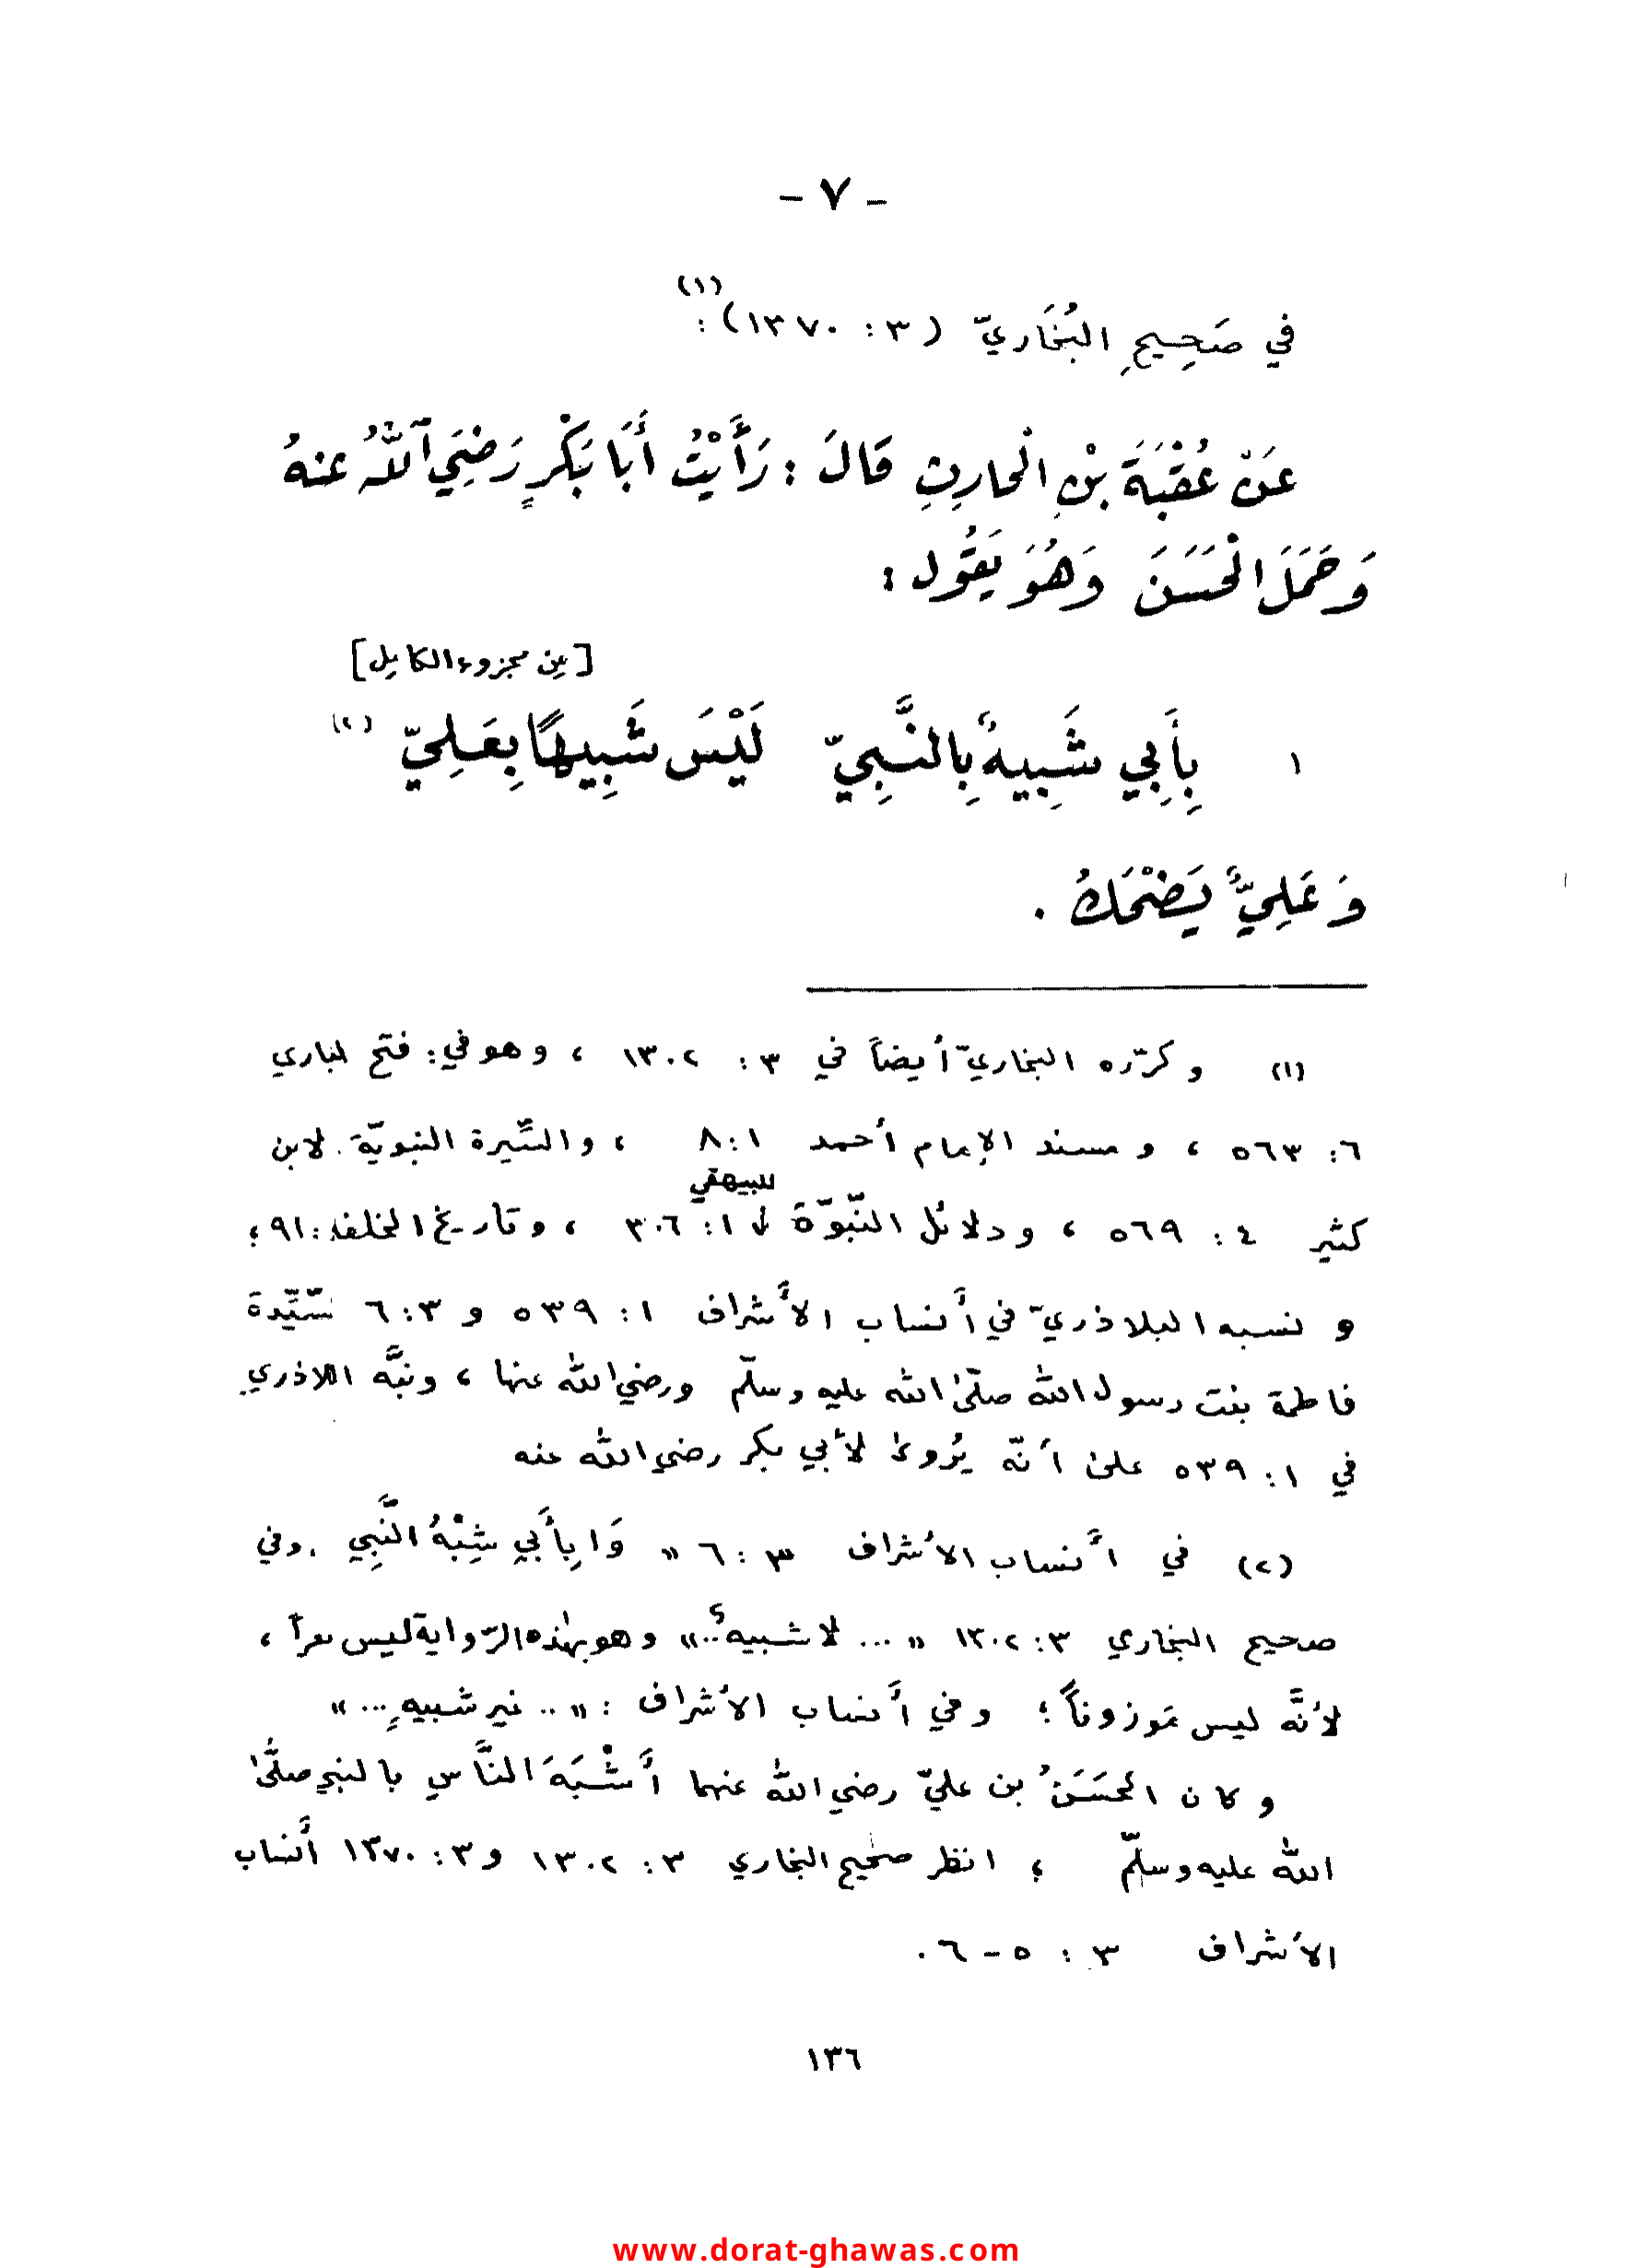 - ٧ -
في صَحِيحِ البُخَاريّ ( ٣ : ١٣٧٠ ) (١) :
عَنْ عُقْبَةَ بْنِ الْحارِثِ قَالَ : رَأَيْتُ أَبَا بَكْرٍ رَضِيَ ٱللّٰهُ عنهُ
وَحَمَلَ الْحَسَنَ وَهُوَ يَقُول :
[ مِن مجزوء الكامِل ]
١ بِأَبِي شَبِيهٌ بِالنَّبِيّ لَيْسَ شَبِيهًا بِعَلِيّ (٢)
وَعَلِيٌّ يَضْحَكُ .
(١) وكرّره البخاريّ أيضاً في ٣ : ١٣٠٢ ، وهو في : فتح الباري
٦ : ٥٦٣ ، ومسند الإمام أحمد ١ : ٨ ، والسِّيرة النبويّة لابن
كثير ٤ : ٥٦٩ ، ودلائل النّبوّة للبيهقي ١ : ٣٠٦ ، وتاريخ الخلفاء : ٩١ ؛
ونسبه البلاذريّ في أنساب الأَشراف ١ : ٥٣٩ و ٣ : ٦ لسّيّدة
فاطمة بنت رسول الله صلّىٰ الله عليه وسلّم ورضي الله عنها ، ونبَّه البلاذري
في ١ : ٥٣٩ علىٰ أنّه يُروىٰ لأبي بكر رضي الله عنه
(٢) في أنساب الأشراف ٣ : ٦ « وَا بِأَبِي شِبْهُ النَّبِي . وفي
صحيح البخاري ٣ : ١٣٠٢ « ... لا شبيهٌ .. » وهو بهٰذه الرّواية ليس شعراً ،
لأنَّه ليس مَوزوناً ؛ وفي أنساب الأشراف : « .. غير شبيهٍ ... »
وكان الحَسَنُ بن عليّ رضي الله عنهما أَشْبَهَ النَّاس بالنبي صلَّىٰ
الله عليه وسلّم ؛ انظر صحيح البخاري ٣ : ١٣٠٢ و ٣ : ١٣٧٠ أنساب
الأشراف ٣ : ٥ - ٦ .
١٣٦
www.dorat-ghawas.com